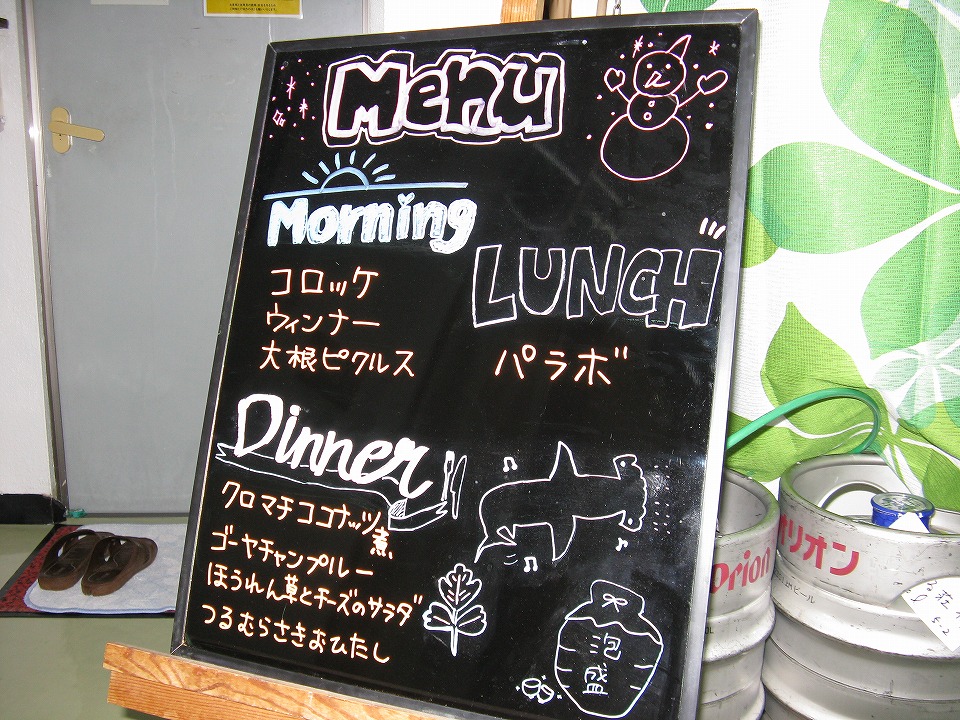 Menu
Morning
コロッケ
ウィンナー
大根ピクルス
LUNCH
パラボ
Dinner
クロマチココナッツ煮
ゴーヤチャンプルー
ほうれん草とチーズのサラダ
つるむらさきおひたし
泡盛
Orion
オリオン